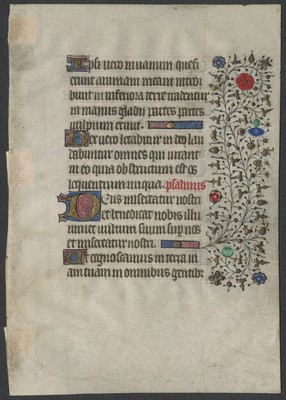 Ipsi vero in vanum quesi
erunt animam meam introi
bunt in inferiora terre tradentur
in manus gladii partes
vulpium erunt.
Rex vero letabitur in deo lau
dabuntur omnes qui iurant
in eo quia obstructum est os
loquentium iniqua. psalmus
Deus misereatur nostri
et benedicat nobis illu
minet vultum suum super nos
et misereatur nostri.
Ut cognoscamus in terra vi
am tuam in omnibus gentibz